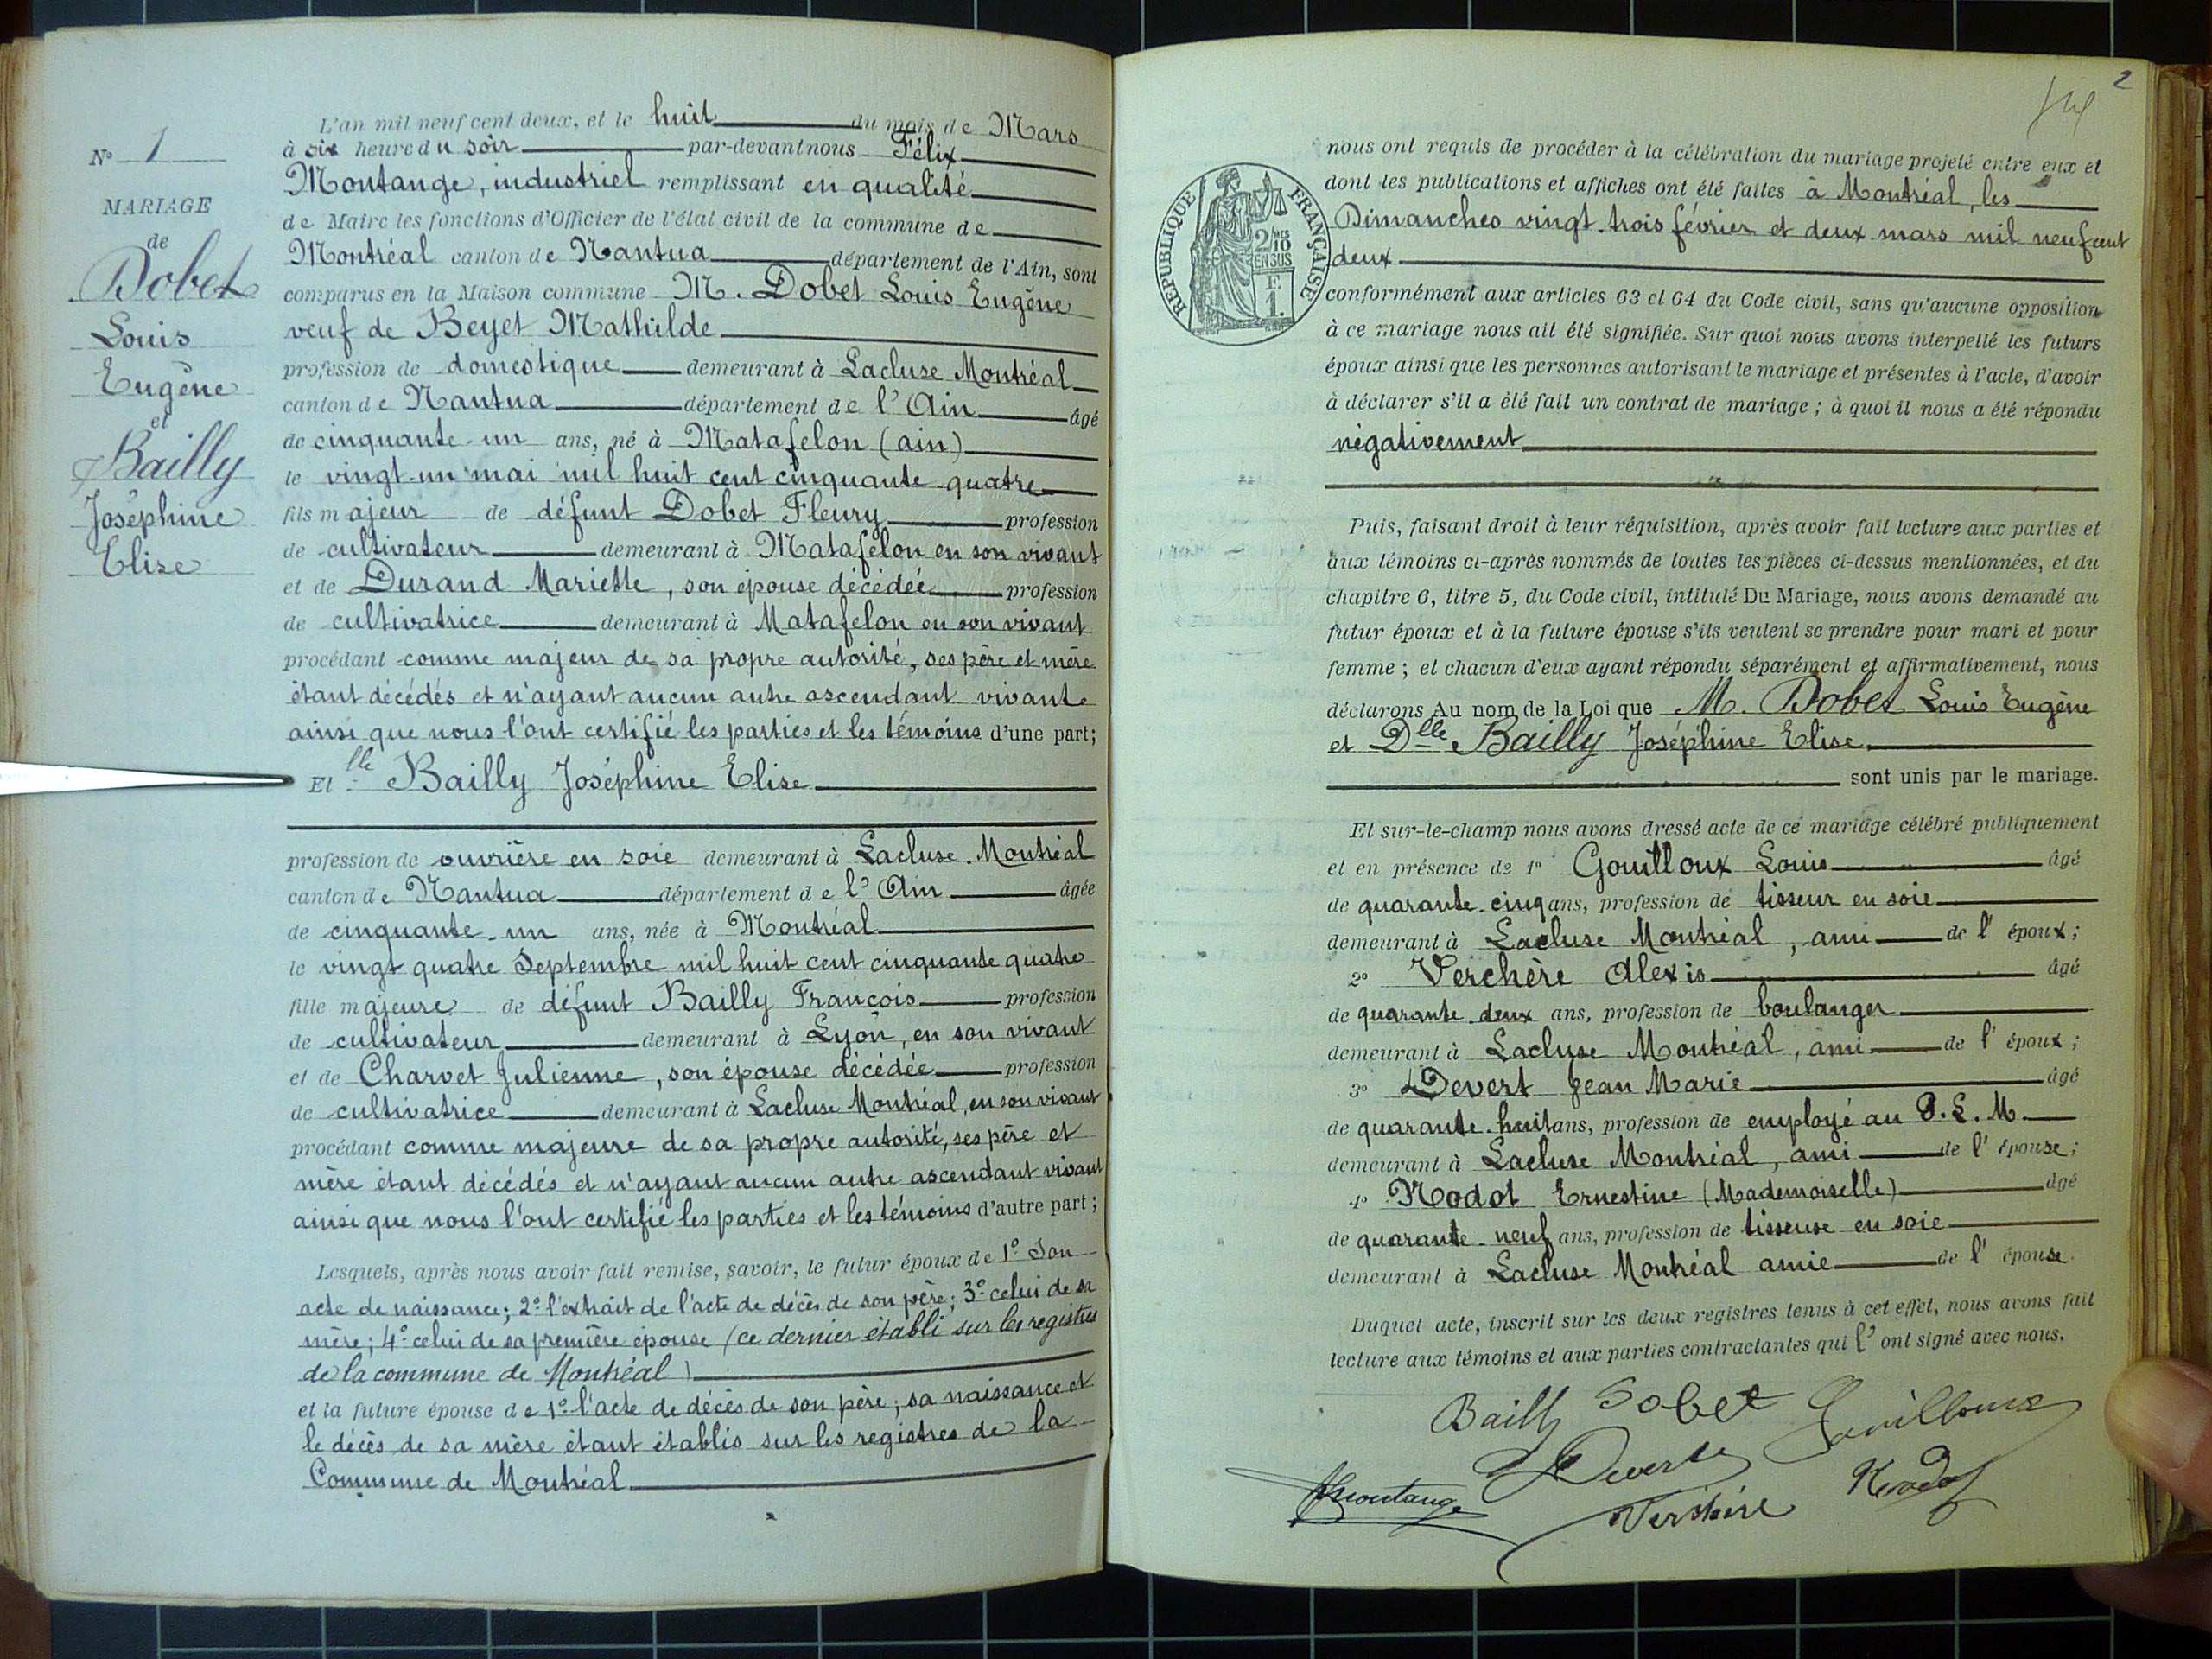 N° 1
MARIAGE
de
Dobet
Louis
Eugène
et
Bailly
Joséphine
Elise
L'an mil neuf cent deux, et le huit du mois de Mars
à six heure du soir par-devant nous Félix
Montange, industriel remplissant en qualité
de Maire les fonctions d'Officier de l'état civil de la commune de
Montréal canton de Nantua département de l'Ain, sont
comparus en la Maison commune M. Dobet Louis Eugène
veuf de Beyet Mathilde
profession de domestique demeurant à Lacluse Montréal
canton de Nantua département de l'Ain âgé
de cinquante-un ans, né à Matafelon (ain)
le vingt-un mai mil huit cent cinquante-quatre
fils majeur de défunt Dobet Fleury profession
de cultivateur demeurant à Matafelon en son vivant
et de Durand Mariette, son épouse décédée profession
de cultivatrice demeurant à Matafelon en son vivant
procédant comme majeur de sa propre autorité, ses père et mère
étant décédés et n'ayant aucun autre ascendant vivant
ainsi que nous l'ont certifié les parties et les témoins d'une part;
Et lle Bailly Joséphine Elise
profession de ouvrière en soie demeurant à Lacluse-Montréal
canton de Nantua département de l'Ain âgée
de cinquante-un ans, née à Montréal
le vingt quatre Septembre mil huit cent cinquante quatre
fille majeure de défunt Bailly François profession
de cultivateur demeurant à Lyon, en son vivant
et de Charvet Julienne, son épouse décédée profession
de cultivatrice demeurant à Lacluse Montréal, en son vivant
procédant comme majeure de sa propre autorité, ses père et
mère étant décédés et n'ayant aucun autre ascendant vivant
ainsi que nous l'ont certifié les parties et les témoins d'autre part;
Lesquels, après nous avoir fait remise, savoir, le futur époux de 1° Son
acte de naissance; 2° l'extrait de l'acte de décès de son père; 3° celui de sa
mère; 4° celui de sa première épouse (ce dernier établi sur les registres
de la commune de Montréal)
et la future épouse de 1° l'acte de décès de son père; sa naissance et
le décès de sa mère étant établis sur les registres de la
Commune de Montréal
2
RÉPUBLIQUE FRANÇAISE
2/10 EN SUS
F. 1.
nous ont requis de procéder à la célébration du mariage projeté entre eux et
dont les publications et affiches ont été faites à Montréal, les
Dimanches vingt-trois février et deux mars mil neuf cent
deux
conformément aux articles 63 et 64 du Code civil, sans qu'aucune opposition
à ce mariage nous ait été signifiée. Sur quoi nous avons interpellé les futurs
époux ainsi que les personnes autorisant le mariage et présentes à l'acte, d'avoir
à déclarer s'il a été fait un contrat de mariage; à quoi il nous a été répondu
négativement
Puis, faisant droit à leur réquisition, après avoir fait lecture aux parties et
aux témoins ci-après nommés de toutes les pièces ci-dessus mentionnées, et du
chapitre 6, titre 5, du Code civil, intitulé Du Mariage, nous avons demandé au
futur époux et à la future épouse s'ils veulent se prendre pour mari et pour
femme; et chacun d'eux ayant répondu séparément et affirmativement, nous
déclarons Au nom de la Loi que M. Dobet Louis Eugène
et Dlle Bailly Joséphine Elise
sont unis par le mariage.
Et sur-le-champ nous avons dressé acte de ce mariage célébré publiquement
et en présence de 1° Gouilloux Louis âgé
de quarante-cinq ans, profession de tisseur en soie
demeurant à Lacluse Montréal, ami de l'époux;
2° Verchère Alexis âgé
de quarante-deux ans, profession de boulanger
demeurant à Lacluse Montréal, ami de l'époux;
3° Devert Jean Marie âgé
de quarante-huit ans, profession de employé au P.L.M
demeurant à Lacluse Montréal, ami de l'épouse;
4° Nodot Ernestine (Mademoiselle) âgé
de quarante-neuf ans, profession de tisseuse en soie
demeurant à Lacluse Montréal amie de l'épouse
Duquel acte, inscrit sur les deux registres tenus à cet effet, nous avons fait
lecture aux témoins et aux parties contractantes qui l'ont signé avec nous.
Bailly Dobet Gouilloux
Devert
Montange Verchère Nodot